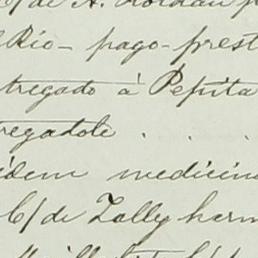 C/ de A. Roldan p
Rio - pago - prest
tregado á Pepita
regadole . . .
idem medicina
C/ de Zally herm